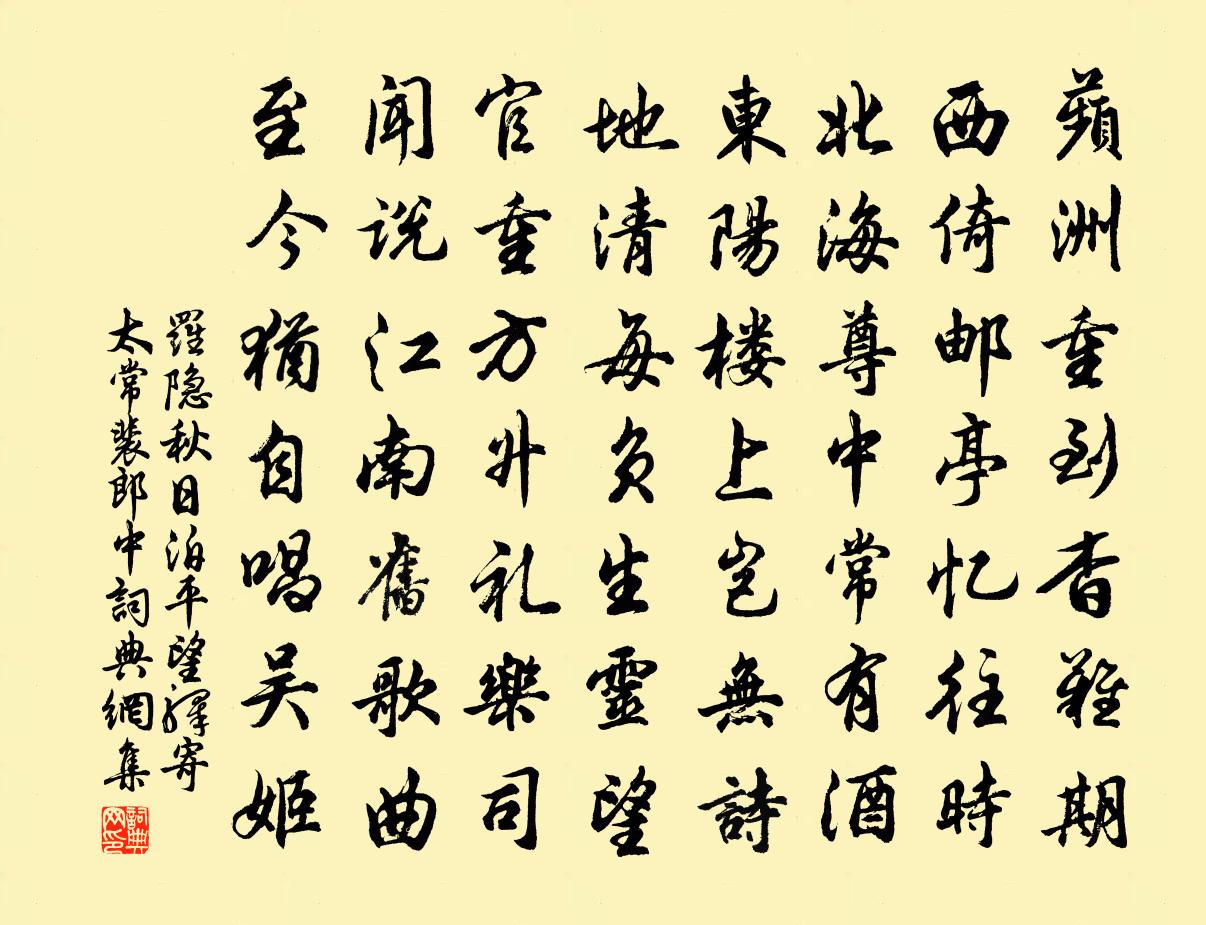 蘋洲重到杳難期
西倚邮亭忆往時
北海尊中常有酒
東陽楼上岂無詩
地清每负生靈望
官重方升礼樂司
闻説江南舊歌曲
至今猶自唱吴姬
羅隐秋日泊平望驛寄
太常裴郎中詞典網集
詞典网印